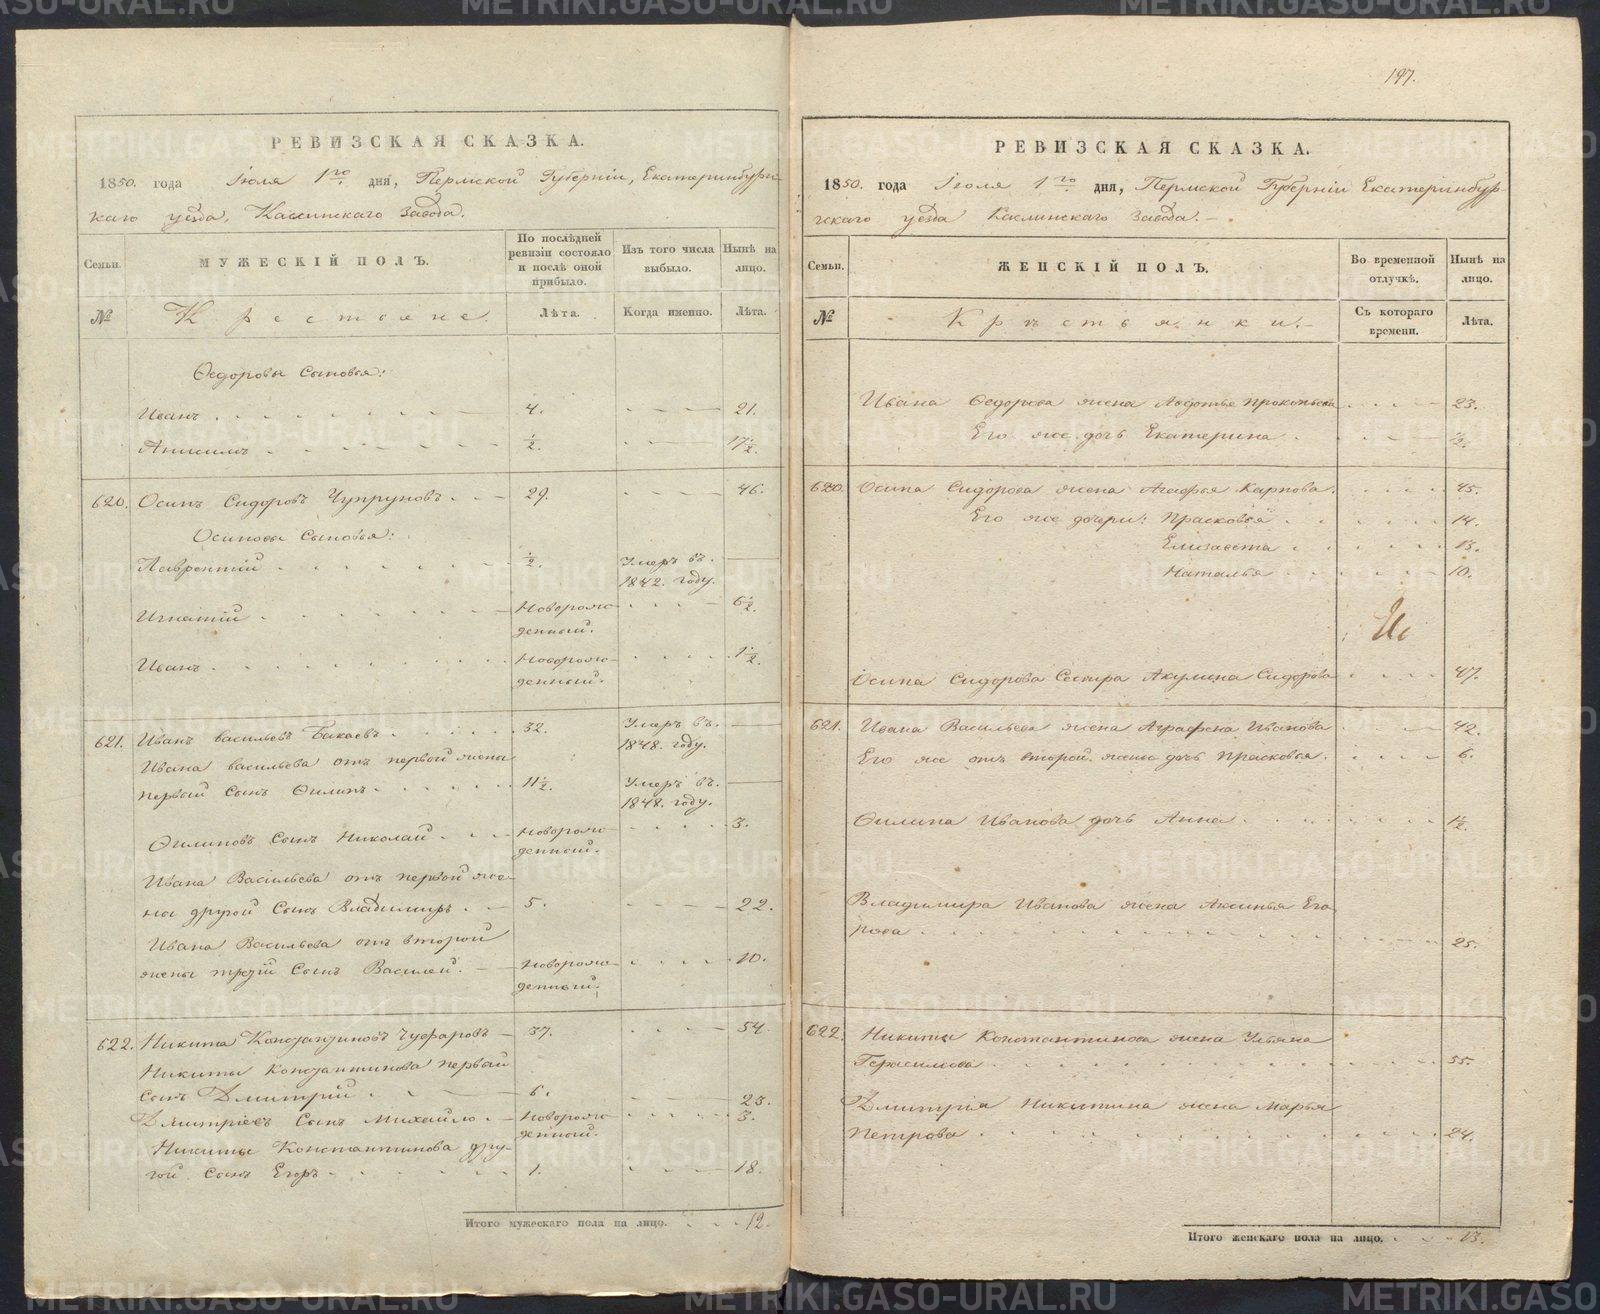 РЕВИЗСКАЯ СКАЗКА.
1850. года Іюля 1го. дня, Пермской Губерніи, Екатеринбург
скаго уезда, Каслинскаго Завода.
Семьи. МУЖЕСКІЙ ПОЛЪ. По послѣдней ревизіи состояло и послѣ оной прибыло. Изъ того числа выбыло. Нынѣ на лицо.
№ Крестьяне. Лѣта. Когда именно. Лѣта.
Ѳедоровы Сыновья:
Иванъ 4. 21.
Анисимъ ½. 17½.
620. Осипъ Сидоровъ Чупруновъ 29. 46.
Осиповы Сыновья:
Лаврентій ½. Умеръ въ
1842. году.
Игнатій Новорож- 6½.
денный.
Иванъ Новорож- 1½.
денный.
621. Иванъ Васильевъ Бакаевъ 32. Умеръ въ
1848. году.
Ивана Васильева отъ первой жены
первый Сынъ Ѳилипъ 11½. Умеръ въ
1848. году.
Ѳилиповъ Сынъ Николай Новорож- 3.
денный.
Ивана Васильева отъ первой же-
ны другой Сынъ Владимиръ 5. 22.
Ивана Васильева отъ второй
жены третій Сынъ Василей. Новорож- 10.
денный.
622. Никита Константиновъ Чуфаровъ 37. 54.
Никиты Константинова первый
сынъ Дмитрій 6. 23.
Дмитріевъ Сынъ Михайло Новорож- 3.
денный.
Никиты Константинова дру-
гой Сынъ Егоръ 1. 18.
Итого мужескаго пола на лицо. 12.
197.
РЕВИЗСКАЯ СКАЗКА.
1850. года Іюля 1го. дня, Пермской Губерніи Екатеринбур-
гскаго уезда Каслинскаго Завода.
Семьи. ЖЕНСКІЙ ПОЛЪ. Во временной отлучкѣ. Нынѣ на лицо.
№ Крестьянки. Съ котораго времени. Лѣта.
Ивана Ѳедорова жена Авдотья Прокопьева 23.
Его же дочь Екатерина ½.
620. Осипа Сидорова жена Агафья Карпова. 45.
Его же дочери: Прасковья 14.
Елизавета 13.
Наталья 10.
Осипа Сидорова Сестра Акулина Сидорова 47.
621. Ивана Васильева жена Аграфена Иванова 42.
Его же отъ второй жены дочь Прасковья. 6.
Ѳилипа Иванова дочь Анна 1½.
Владимира Иванова жена Аксинья Его
рова 25.
622. Никиты Константинова жена Ульяна
Герасимова 55.
Дмитрія Никитина жена Марья
Петрова 24.
Итого женскаго пола на лицо. 13.
METRIKI.GASO-URAL.RU